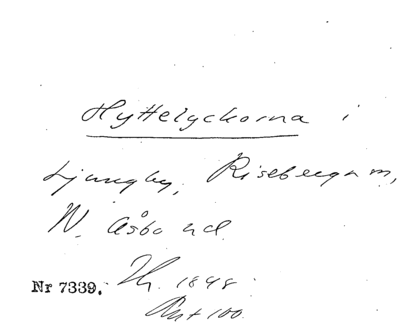 Hyttelyckorna i
Ljungby, Riseberga sn,
N. Åsbo hd.
Nr 7339. Th. 1848
Ant 100.